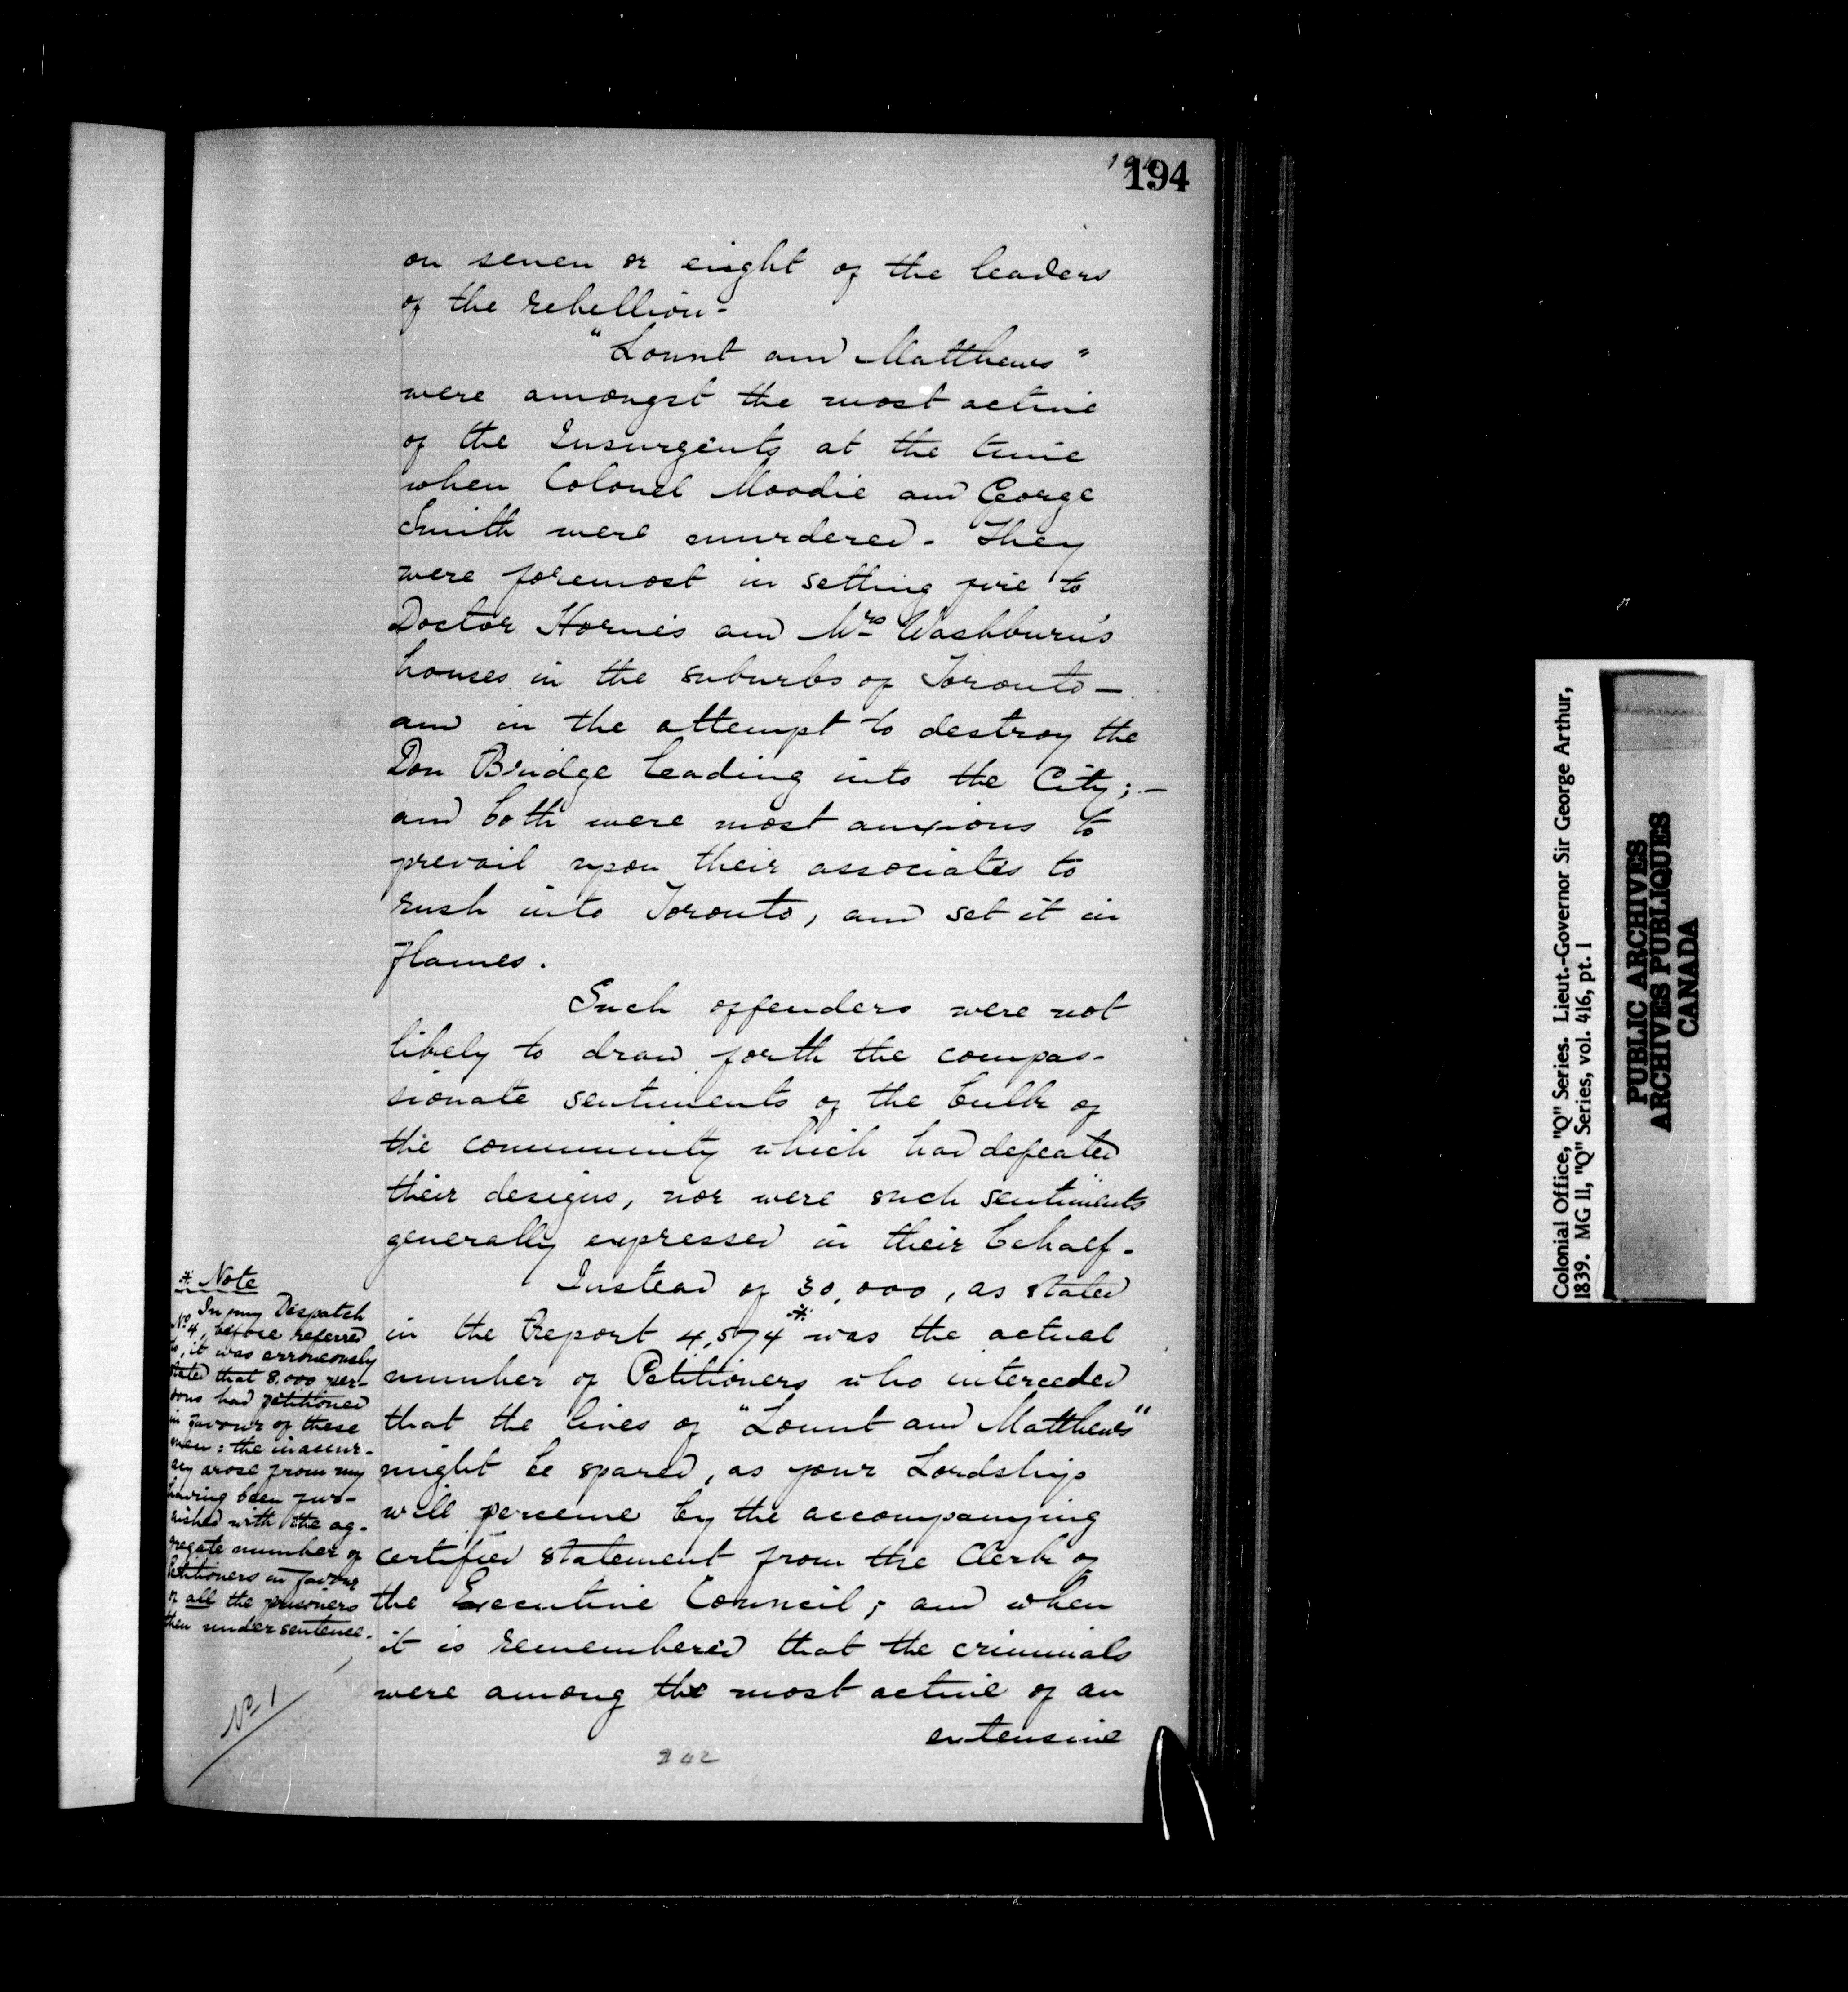 194
on seven or eight of the leaders
of the rebellion-
"Lount and Matthews"
were amongst the most active
of the Insurgents at the time
when Colonel Moodie and George
Smith were murdered- They
were foremost in setting fire to
Doctor Horne's and Mrs Washburn's
houses in the suburbs of Toronto—
and in the attempt to destroy the
Don Bridge leading into the City;—
and both were most anxious to
prevail upon their associates to
rush into Toronto, and set it in
flames.
Such offenders were not
likely to draw forth the compas-
sionate sentiments of the bulk of
the community which had defeated
their designs, nor were such sentiments
generally expressed in their behalf-
Instead of 30,000, as stated
in the Report 4,574* was the actual
number of Petitioners who interceded
that the lives of "Lount and Matthews"
might be spared, as your Lordship
will perceive by the accompanying
certified statement from the Clerk of
the Executive Council; and when
it is remembered that the criminals
were among the most active of an
extensive
* Note
In my Dispatch
No 4, before referred
to, it was erroneously
stated that 8.000 per-
sons had petitioned
in favour of these
men: the inaccur-
acy arose from my
having been fur-
nished with the ag-
gregate number of
Petitioners in favour
of all the prisoners
then under sentence.
No 1
242
Colonial Office, "Q" Series. Lieut.-Governor Sir George Arthur,
1839. MG 11, "Q" Series, vol. 416, pt. 1
PUBLIC ARCHIVES
ARCHIVES PUBLIQUES
CANADA